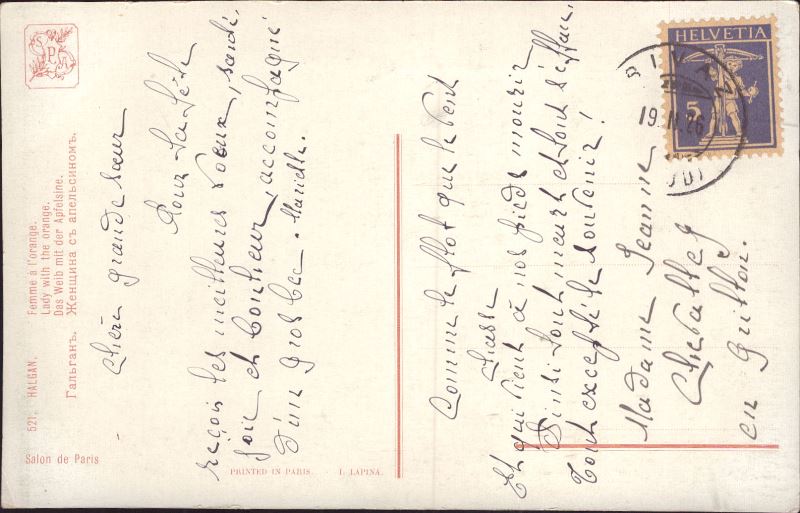 521. HALGAN.
Femme à l'orange.
Lady with the orange.
Das Weib mit der Apfelsine.
Гальганъ. Женщина съ апельсиномъ.
Salon de Paris
PRINTED IN PARIS. - I. LAPINA.
Chère grande sœur
Pour ta fête
reçois les meilleures vœux, santé,
joie et bonheur, accompagné
d'un gros bec. Marielle.
Comme le flot que le vent
chasse
Et qui vient à nos pieds mourir
Ainsi tout meurt et tout s'efface,
Tout excepté le souvenir!
Madame Jeanne
Chevalley
en Grillon.
HELVETIA
5
19.II.26